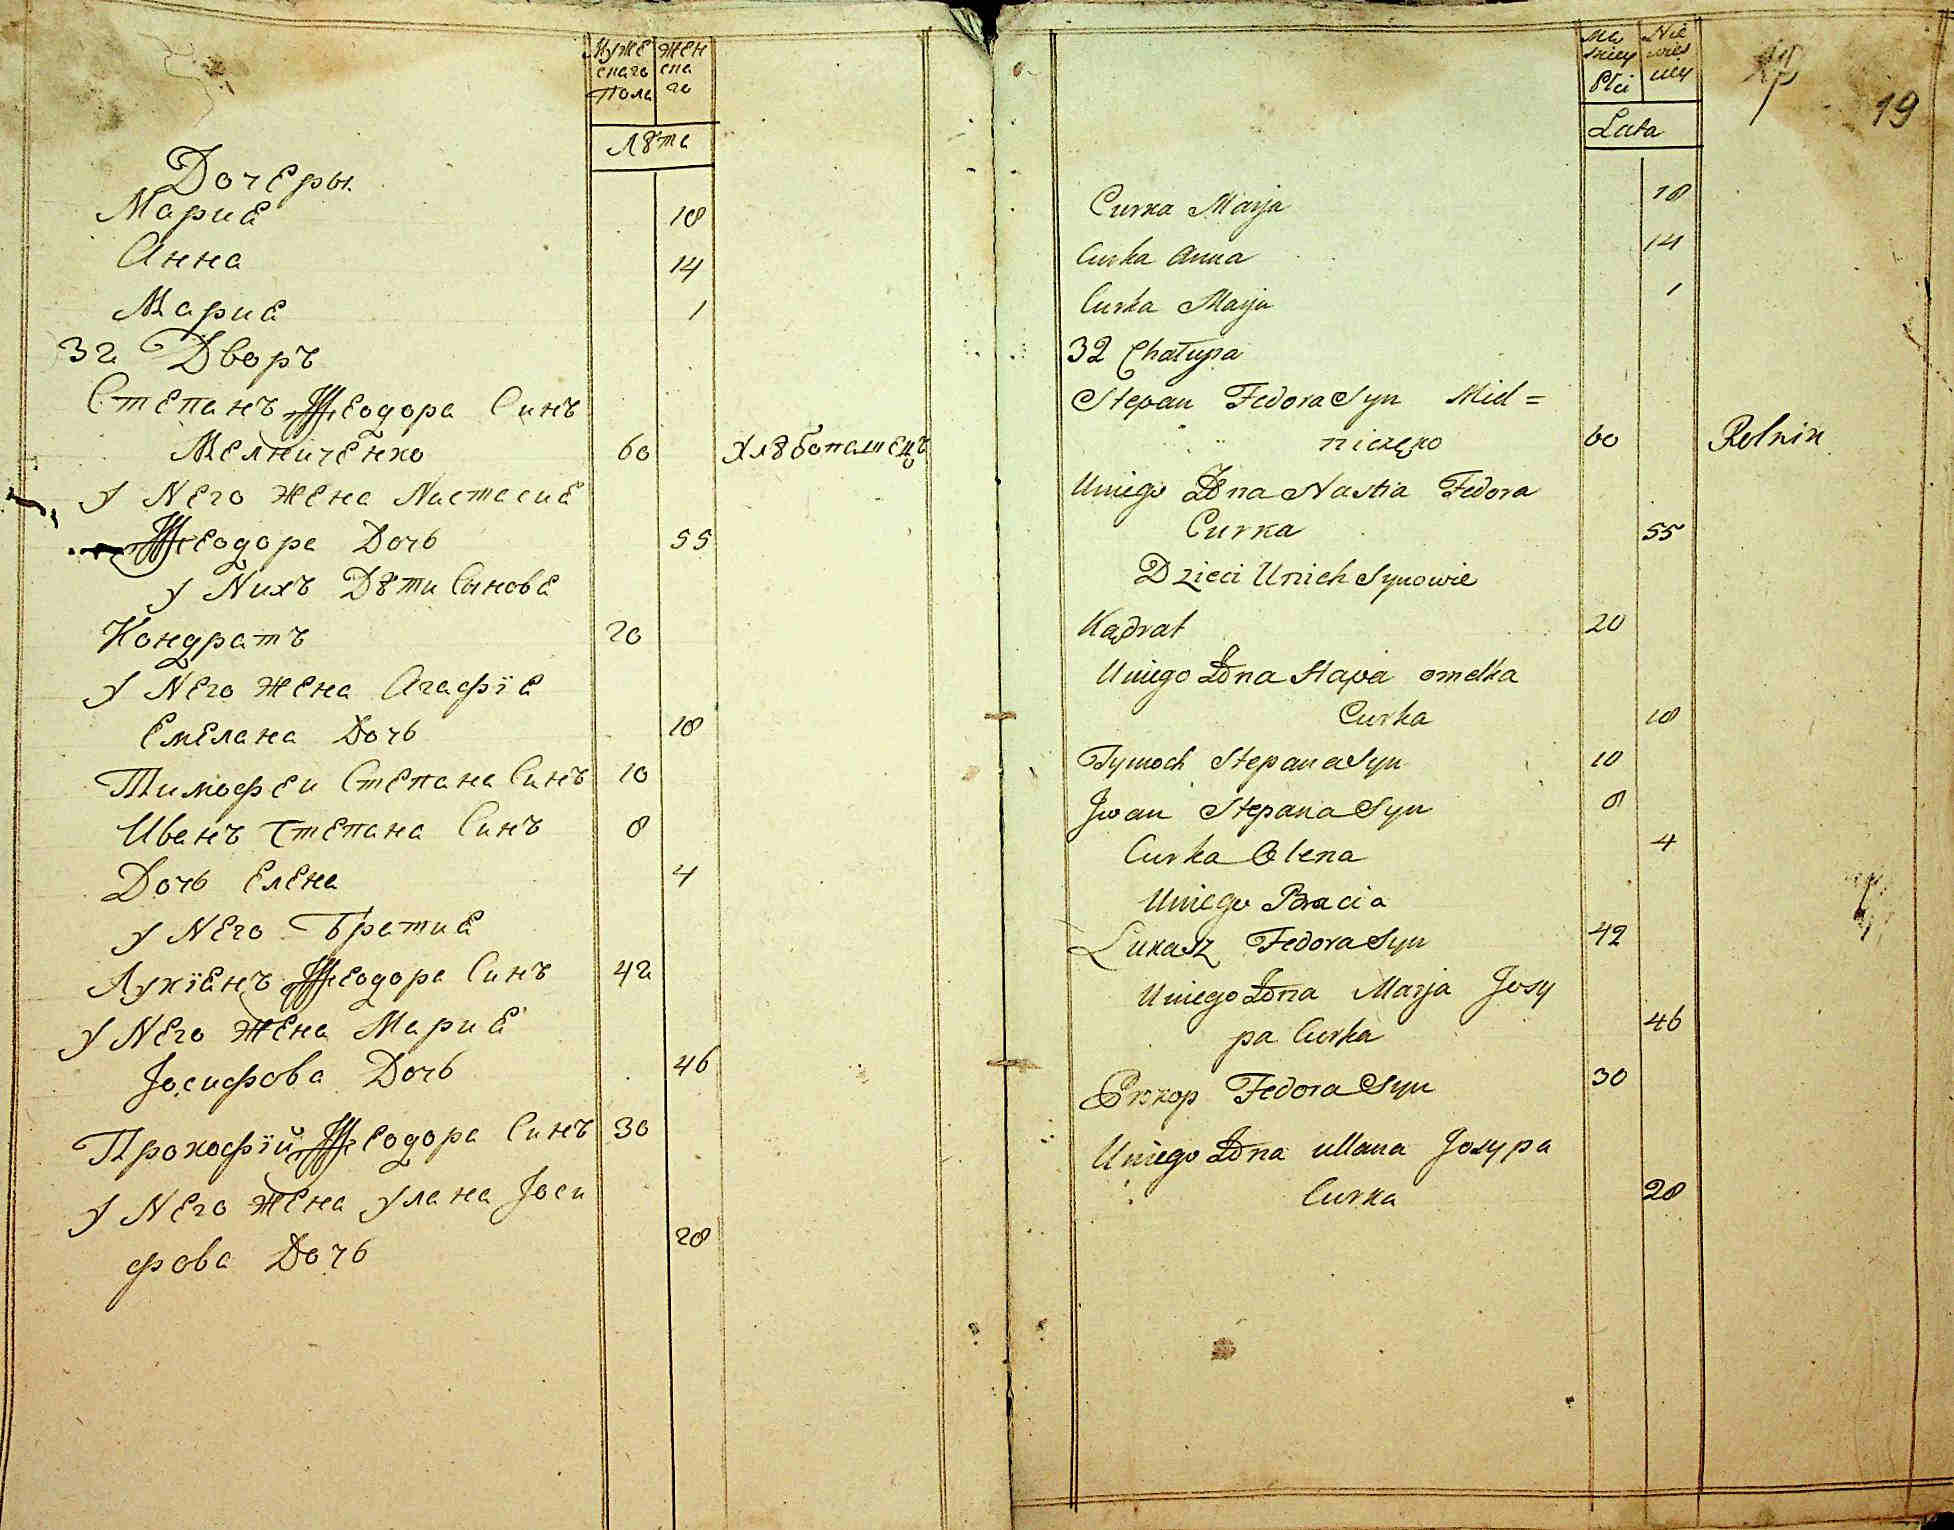 Мужескаго Пола
Женскаго
Лѣта
Дочеры
Мариꙗ 18
Анна 14
Мариꙗ 1
32 Дворъ
Степанъ Ѳеодора Синъ
Мелниченко 60 Хлѣбопашецъ
У Него жена Настасиꙗ
Ѳеодора Дочь 55
У Нихъ Дѣти Сыновꙗ
Кондратъ 20
У Него жена Агафїꙗ
Емелꙗна Дочь 18
Тимофеи Степана Синъ 10
Иванъ Степана Синъ 8
Дочь Елена 4
У Него Братиꙗ
Лукїꙗнъ Ѳеодора Синъ 42
У Него жена Мариꙗ
Іосифова Дочь 46
Прокофїй Ѳеодора Синъ 30
У Него жена Улꙗна Іоси
фова Дочь 28
Męskiey Płci
Niewieściey
Lata
19
Curka Marja 18
Curka Anna 14
Curka Marja 1
32 Chałupa
Stepan Fedora Syn Miel=
niczęko 60 Rolnik
Uniego Żona Nastia Fedora
Curka 55
Dzieci Unich Synowie
Kądrat 20
Uniego Żona Hapa omelka
Curka 18
Tymoch Stepana Syn 10
Jwan Stepana Syn 8
Curka Olena 4
Uniego Bracia
Lukasz Fedora Syn 42
Uniego Żona Marja Josy
pa Curka 46
Prokop Fedora Syn 30
Uniego Żona ullana Josypa
Curka 28